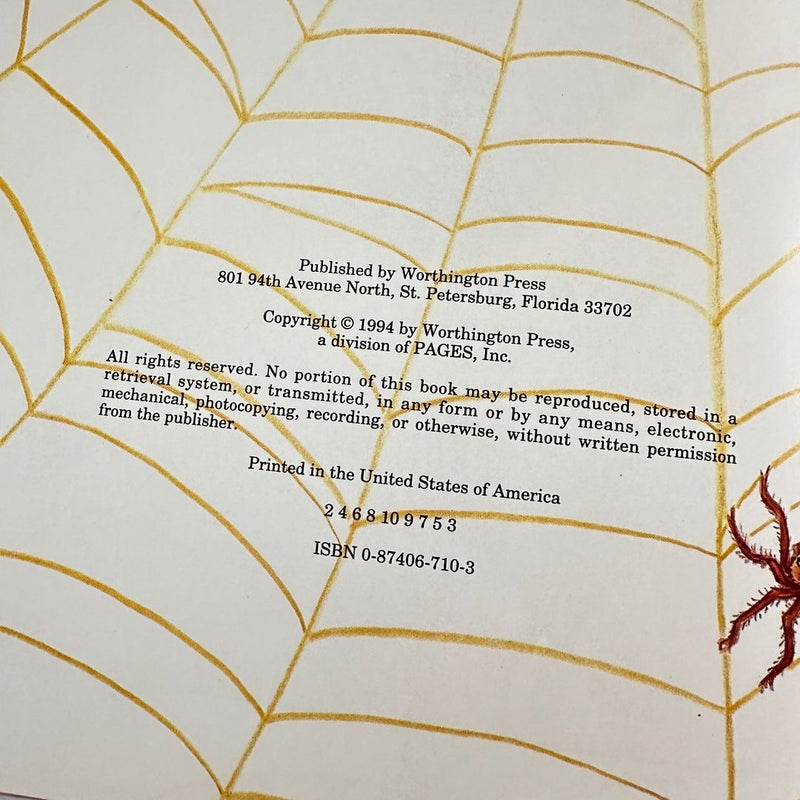 Published by Worthington Press
801 94th Avenue North, St. Petersburg, Florida 33702
Copyright © 1994 by Worthington Press,
a division of PAGES, Inc.
All rights reserved. No portion of this book may be reproduced, stored in a
retrieval system, or transmitted, in any form or by any means, electronic,
mechanical, photocopying, recording, or otherwise, without written permission
from the publisher.
Printed in the United States of America
2 4 6 8 10 9 7 5 3
ISBN 0-87406-710-3